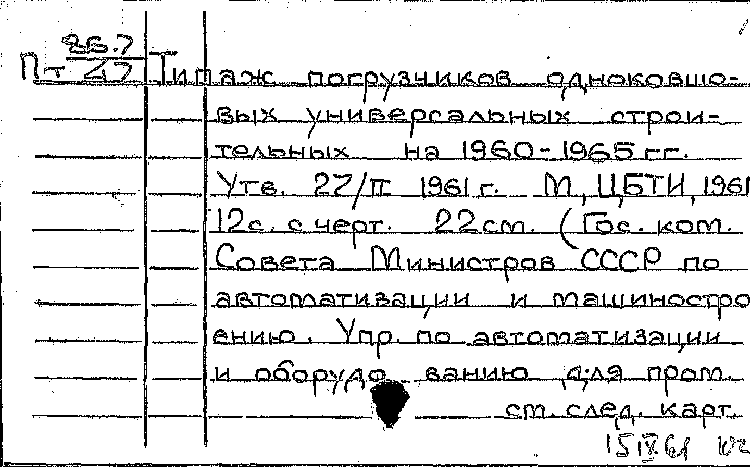 Пт 27 Типаж погрузчиков одноковшо-
вых универсальных строи-
тельных на 1960-1965 гг.
Утв. 27/II 1961 г. М, ЦБТИ, 1961
12 с. с черт. 22 см. (Гос. ком.
Совета Министров СССР по
автоматизации и машиностро
ению. Упр. по автоматизации
и оборудованию для пром.
см. след. карт.
15 IX 61